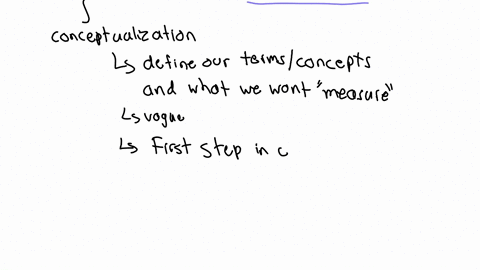 conceptualization
↳ define our terms/concepts
and what we want "measure"
↳ vague
↳ First step in c